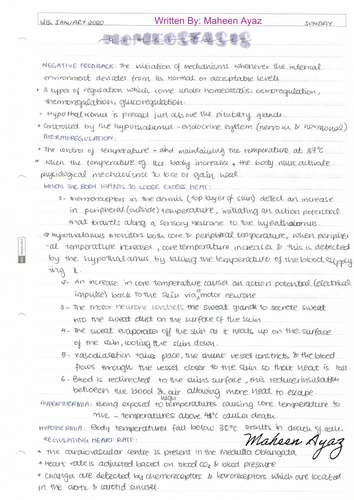 26, JANUARY 2020 Written By: Maheen Ayaz SUNDAY
HOMEOSTASIS
NEGATIVE FEEDBACK: The initiation of mechanisms whenever the internal
environment deviates from its normal or acceptable level.
• 3 types of regulation which come under homeostasis: osmoregulation,
thermoregulation, glucoregulation.
• Hypothalamus is present just above the pituitary gland.
• Controlled by the hypothalamus - endocrine system (nervous & hormonal)
THERMOREGULATION:
• The control of temperature - and maintaining the temperature at 37°C
• When the temperature of the body increases, the body must activate
physiological mechanisms to lose or gain heat.
WHEN THE BODY WANTS TO LOOSE EXCESS HEAT:
1- Thermoreceptors in the dermis (top layer of skin) detect an increase
in peripheral (outside) temperature, initiating an action potential
that travels along a sensory neurone to the hypothalamus.
Hypothalamus monitors both core & peripheral temperature, when peripher
-al temperature increases, core temperature increases & this is detected
by the hypothalamus by taking the temperature of the blood supply
ing it.
2- An increase in core temperature causes an action potential (electrical
impulse) back to the skin via a motor neurone
3- The motor neurone contracts the sweat glands to secrete sweat
into the sweat duct on the surface of the skin
4- The sweat evaporates off the skin as it heats up on the surface
of the skin, cooling the skin down.
5- Vasodialation takes place, the shunt vessel constricts & the blood
flows through the vessel closer to the skin so that heat is lost
6- Blood is redirected to the skins surface, this reduces insulation
between the blood & air allowing more heat to escape.
HYPERTHERMIA: Being exposed to high temperatures causing core temperature to
rise - temperatures above causes death.
HYPOTHERMIA: Body temperatures fall below 35°C results in death of cells.
REGULATING HEART RATE: Maheen Ayaz
• The cardiovascular centre is present in the Medulla Oblongata
• Heart rate is adjusted based on blood CO2 & blood pressure
• Changes are detected by chemoreceptors & baroreceptors which are located
in the aorta & carotid sinuses.